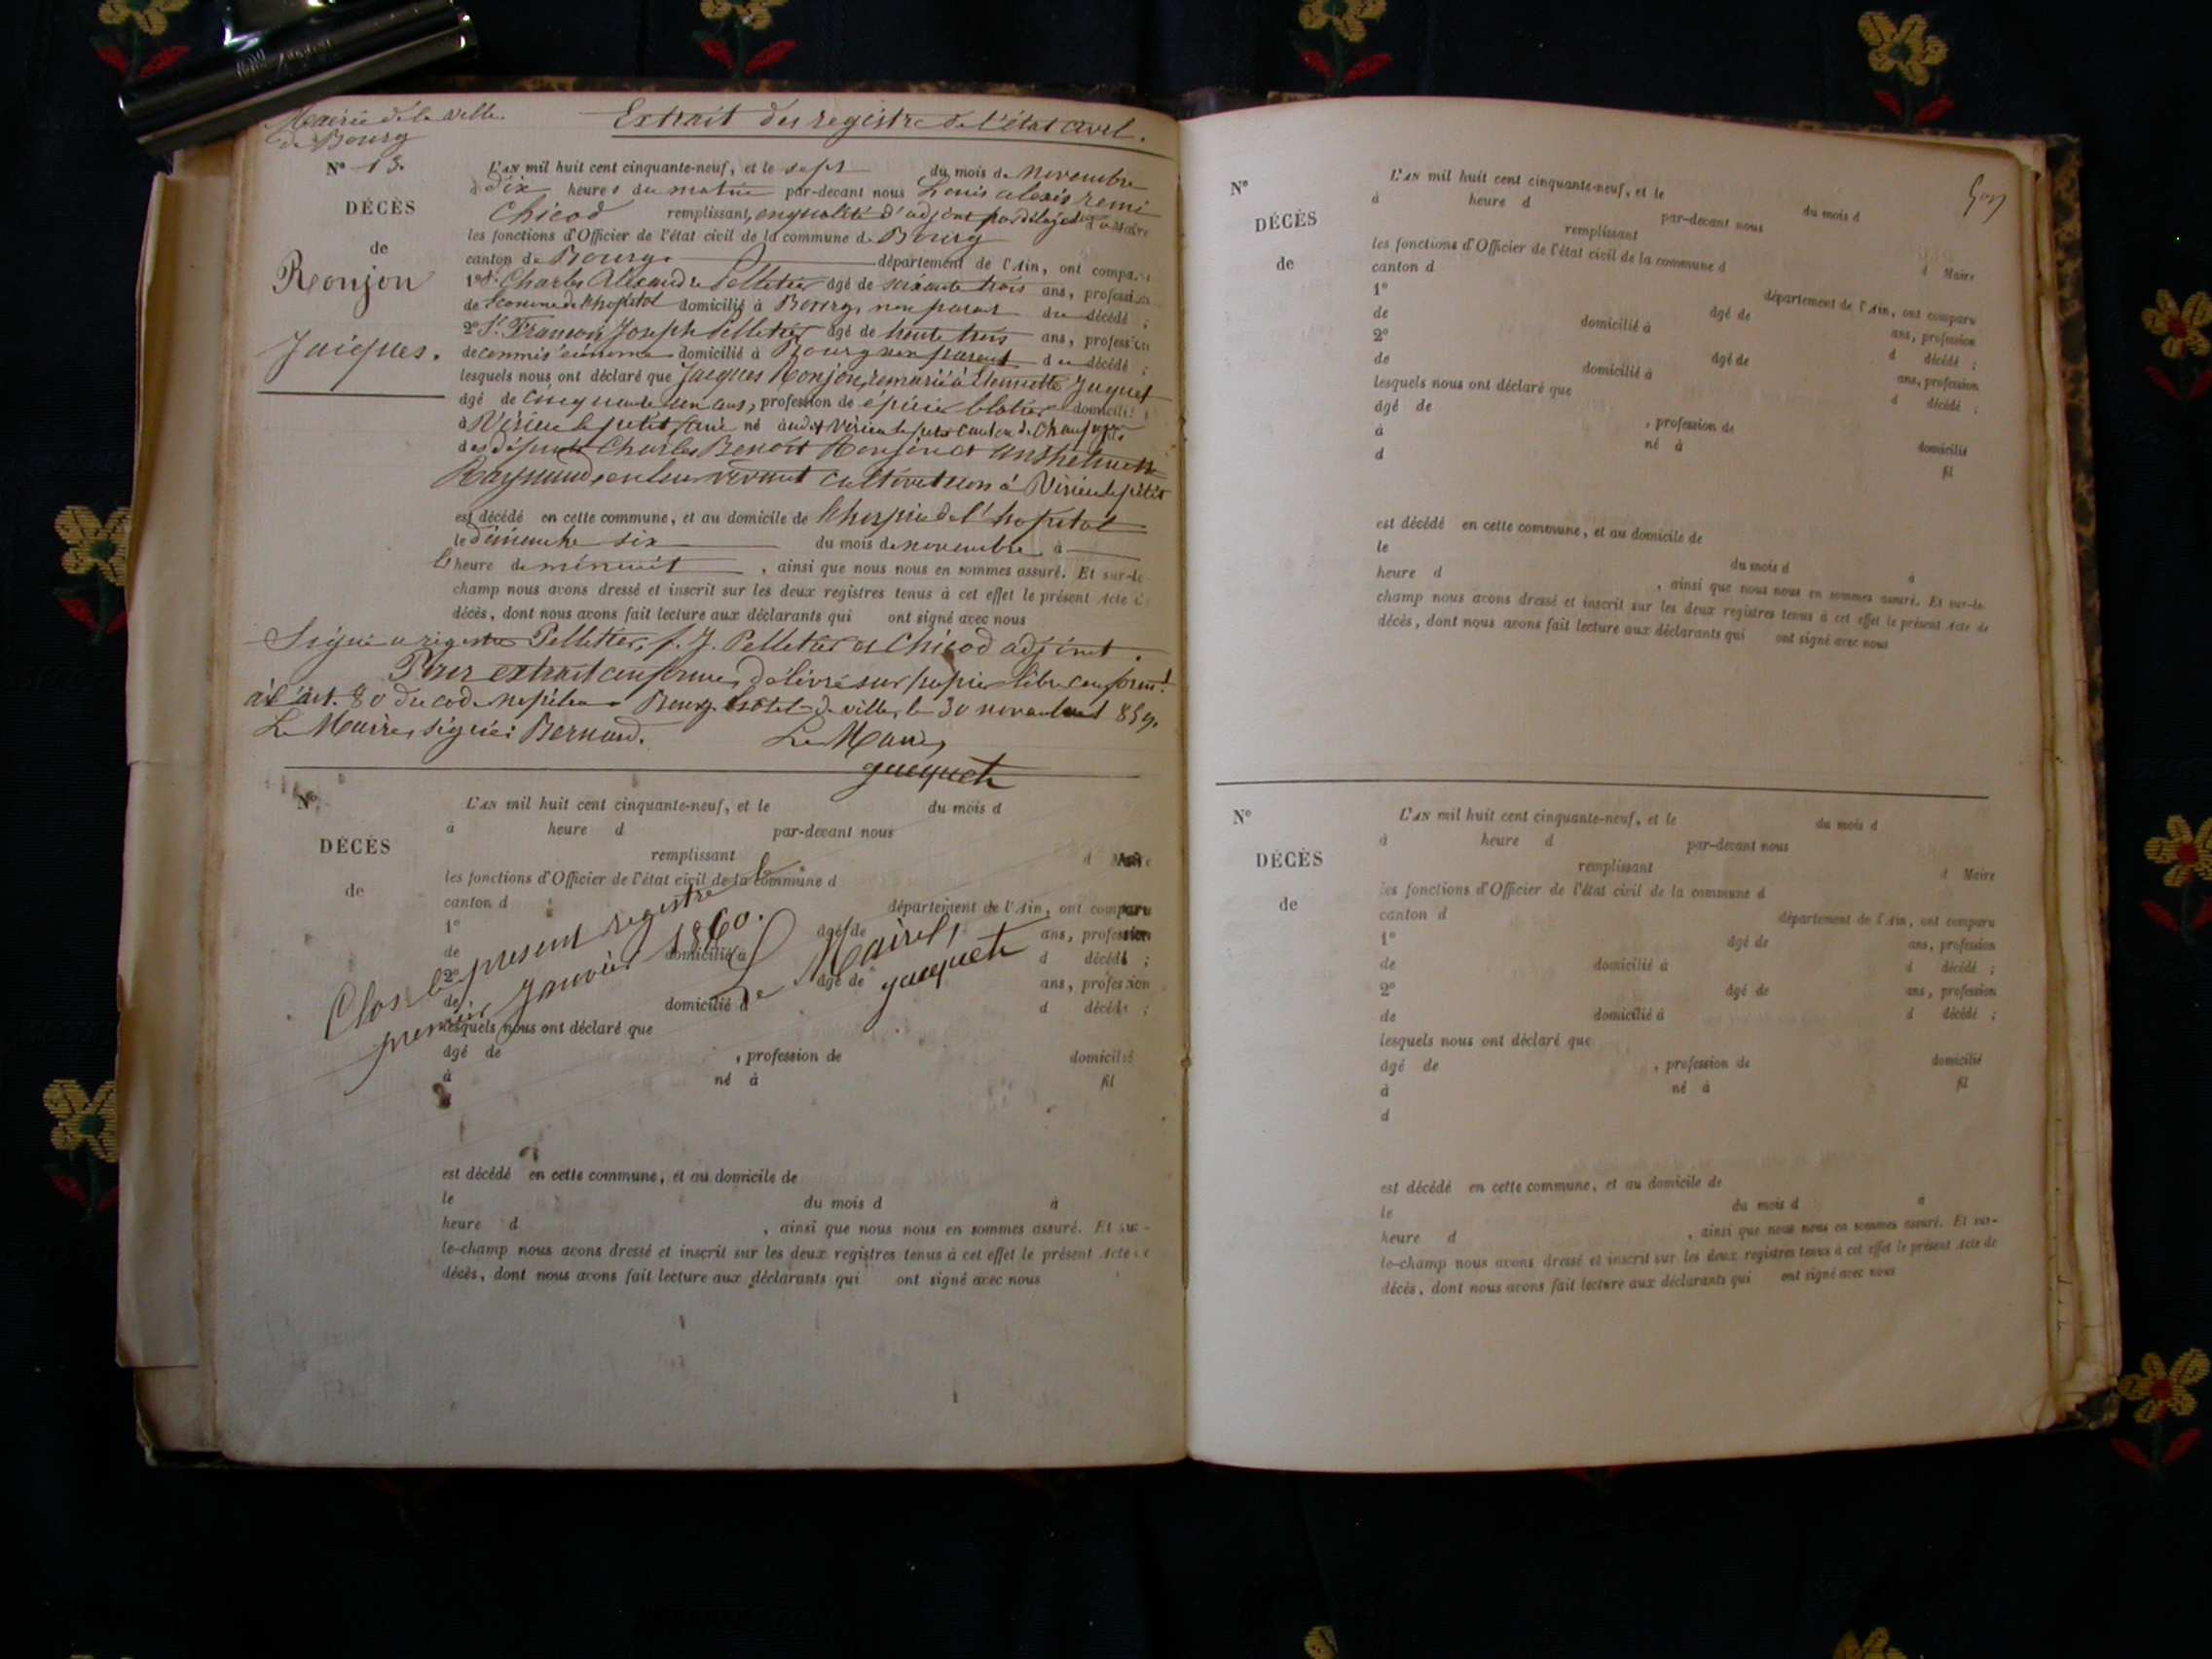 Mairie de la ville
de Bourg
Extrait des registre de l'état civil.
N° 13.
DÉCÈS
de
Ronjon
Jacques.
L'AN mil huit cent cinquante-neuf, et le sept du mois de novembre
à dix heures du matin par-devant nous Louis alexis remi
Chicod remplissant, en qualité d'adjoint par délég. du Maire
les fonctions d'Officier de l'état civil de la commune de Bourg
canton de Bourg département de l'Ain, ont comparu
1° Sr Charles Alexandre Pelletier âgé de soixante trois ans, profession
de économe de l'hopital domicilié à Bourg, non parent du décédé ;
2° Sr François Joseph Pelletier âgé de trente trois ans, profession
de commis économe domicilié à Bourg non parent du décédé ;
lesquels nous ont déclaré que Jacques Ronjon, remarié à Etiennette Juquet
âgé de cinquante un ans, profession de épicier domicilié
à Virieu le petit né audit Virieu le petit canton de Champagne
des défunts Charles Benoit Ronjon et Anthelmette
Raynaud, en leur vivant cultivateurs à Virieu le petit
est décédé en cette commune, et au domicile de l'hospice de l'hopital
le dimanche six du mois de novembre à
heure de minuit , ainsi que nous nous en sommes assuré. Et sur-le-
champ nous avons dressé et inscrit sur les deux registres tenus à cet effet le présent Acte de
décès, dont nous avons fait lecture aux déclarants qui ont signé avec nous
Signé au registre Pelletier, f. J. Pelletier et Chicod adjoint.
Pour extrait conforme, délivré sur papier libre conformt
à l'art. 80 du code napoléon Bourg hotel de ville, le 30 novembre 1859.
Le Maire, signé: Bernard. Le Maire,
guequet
N°
DÉCÈS
de
L'AN mil huit cent cinquante-neuf, et le du mois d
à heure d par-devant nous
remplissant d Maire
les fonctions d'Officier de l'état civil de la commune d
canton d département de l'Ain, ont comparu
1° âgé de ans, profession
de domicilié à d décédé ;
2° âgé de ans, profession
de domicilié à d décédé ;
lesquels nous ont déclaré que
âgé de , profession de domicilié
à né à fil
Clos le présent registre le
premier janvier 1860.
Le Maire,
guequet
est décédé en cette commune, et au domicile de
le du mois d à
heure d , ainsi que nous nous en sommes assuré. Et sur-
le-champ nous avons dressé et inscrit sur les deux registres tenus à cet effet le présent Acte de
décès, dont nous avons fait lecture aux déclarants qui ont signé avec nous
N°
DÉCÈS
de
L'AN mil huit cent cinquante-neuf, et le du mois d
à heure d par-devant nous
remplissant d Maire
les fonctions d'Officier de l'état civil de la commune d
canton d département de l'Ain, ont comparu
1° âgé de ans, profession
de domicilié à d décédé ;
2° âgé de ans, profession
de domicilié à d décédé ;
lesquels nous ont déclaré que
âgé de , profession de domicilié
à né à fil
d
est décédé en cette commune, et au domicile de
le du mois d à
heure d , ainsi que nous nous en sommes assuré. Et sur-le-
champ nous avons dressé et inscrit sur les deux registres tenus à cet effet le présent Acte de
décès, dont nous avons fait lecture aux déclarants qui ont signé avec nous
N°
DÉCÈS
de
L'AN mil huit cent cinquante-neuf, et le du mois d
à heure d par-devant nous
remplissant d Maire
les fonctions d'Officier de l'état civil de la commune d
canton d département de l'Ain, ont comparu
1° âgé de ans, profession
de domicilié à d décédé ;
2° âgé de ans, profession
de domicilié à d décédé ;
lesquels nous ont déclaré que
âgé de , profession de domicilié
à né à fil
d
est décédé en cette commune, et au domicile de
le du mois d à
heure d , ainsi que nous nous en sommes assuré. Et sur-
le-champ nous avons dressé et inscrit sur les deux registres tenus à cet effet le présent Acte de
décès, dont nous avons fait lecture aux déclarants qui ont signé avec nous